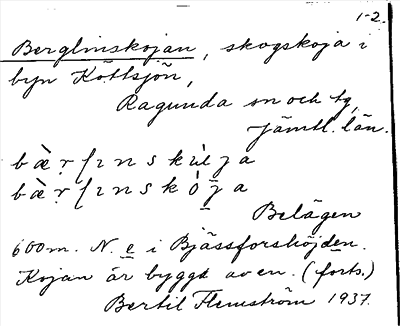 1-2.
Berglinskojan, skogskoja i
byn Köttsjön,
Ragunda sn och tg,
Jämtl. län.
Belägen
600 m. N. e i Bjässforshöjden.
Kojan är byggd av en. (forts.)
Bertil Flemström 1937.